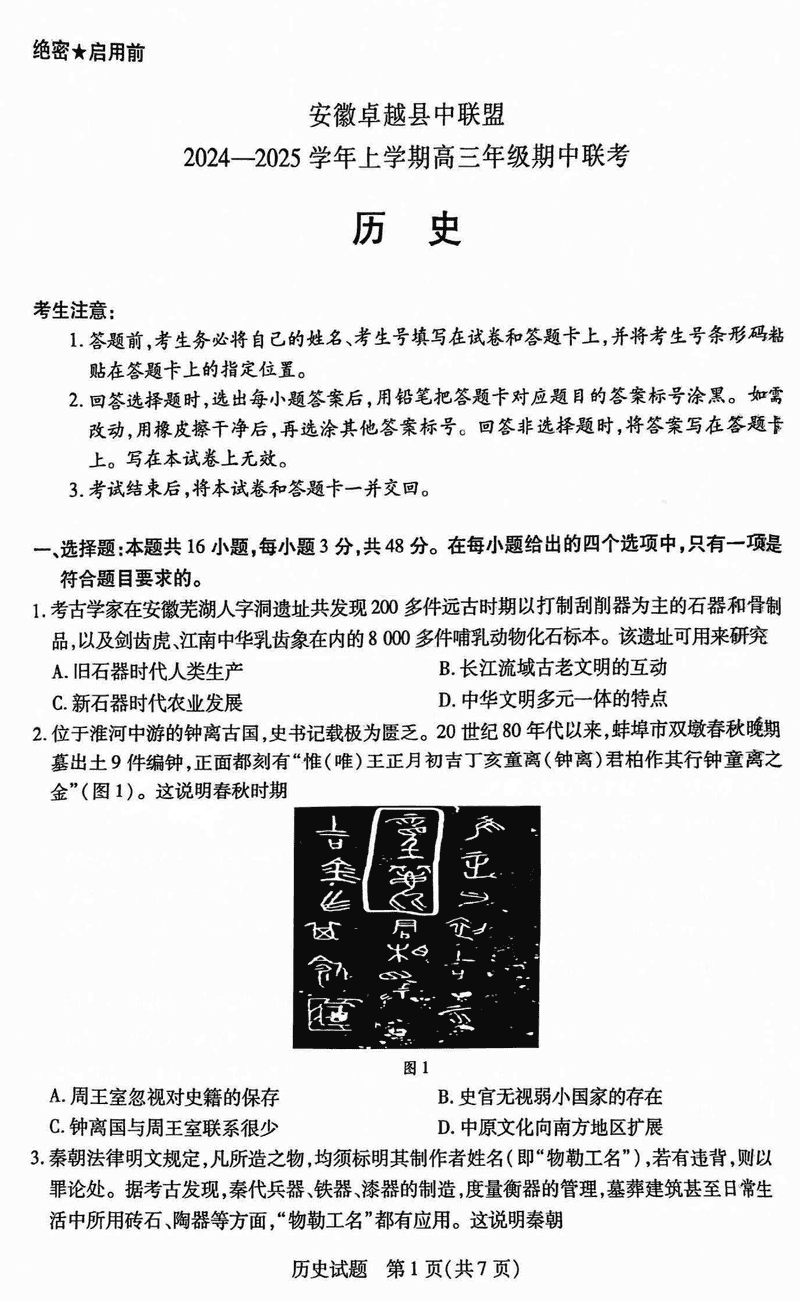 绝密★启用前
安徽卓越县中联盟
2024—2025 学年上学期高三年级期中联考
历 史
考生注意:
1. 答题前,考生务必将自己的姓名、考生号填写在试卷和答题卡上,并将考生号条形码粘
贴在答题卡上的指定位置。
2. 回答选择题时,选出每小题答案后,用铅笔把答题卡对应题目的答案标号涂黑。如需
改动,用橡皮擦干净后,再选涂其他答案标号。回答非选择题时,将答案写在答题卡
上。写在本试卷上无效。
3. 考试结束后,将本试卷和答题卡一并交回。
一、选择题:本题共 16 小题,每小题 3 分,共 48 分。在每小题给出的四个选项中,只有一项是
符合题目要求的。
1. 考古学家在安徽芜湖人字洞遗址共发现 200 多件远古时期以打制刮削器为主的石器和骨制
品,以及剑齿虎、江南中华乳齿象在内的 8 000 多件哺乳动物化石标本。该遗址可用来研究
A. 旧石器时代人类生产 B. 长江流域古老文明的互动
C. 新石器时代农业发展 D. 中华文明多元一体的特点
2. 位于淮河中游的钟离古国,史书记载极为匮乏。20 世纪 80 年代以来,蚌埠市双墩春秋晚期
墓出土 9 件编钟,正面都刻有“惟(唯)王正月初吉丁亥童离(钟离)君柏作其行钟童离之
金”(图 1)。这说明春秋时期
图 1
A. 周王室忽视对史籍的保存 B. 史官无视弱小国家的存在
C. 钟离国与周王室联系很少 D. 中原文化向南方地区扩展
3. 秦朝法律明文规定,凡所造之物,均须标明其制作者姓名(即“物勒工名”),若有违背,则以
罪论处。据考古发现,秦代兵器、铁器、漆器的制造,度量衡器的管理,墓葬建筑甚至日常生
活中所用砖石、陶器等方面,“物勒工名”都有应用。这说明秦朝
历史试题 第 1 页(共 7 页)